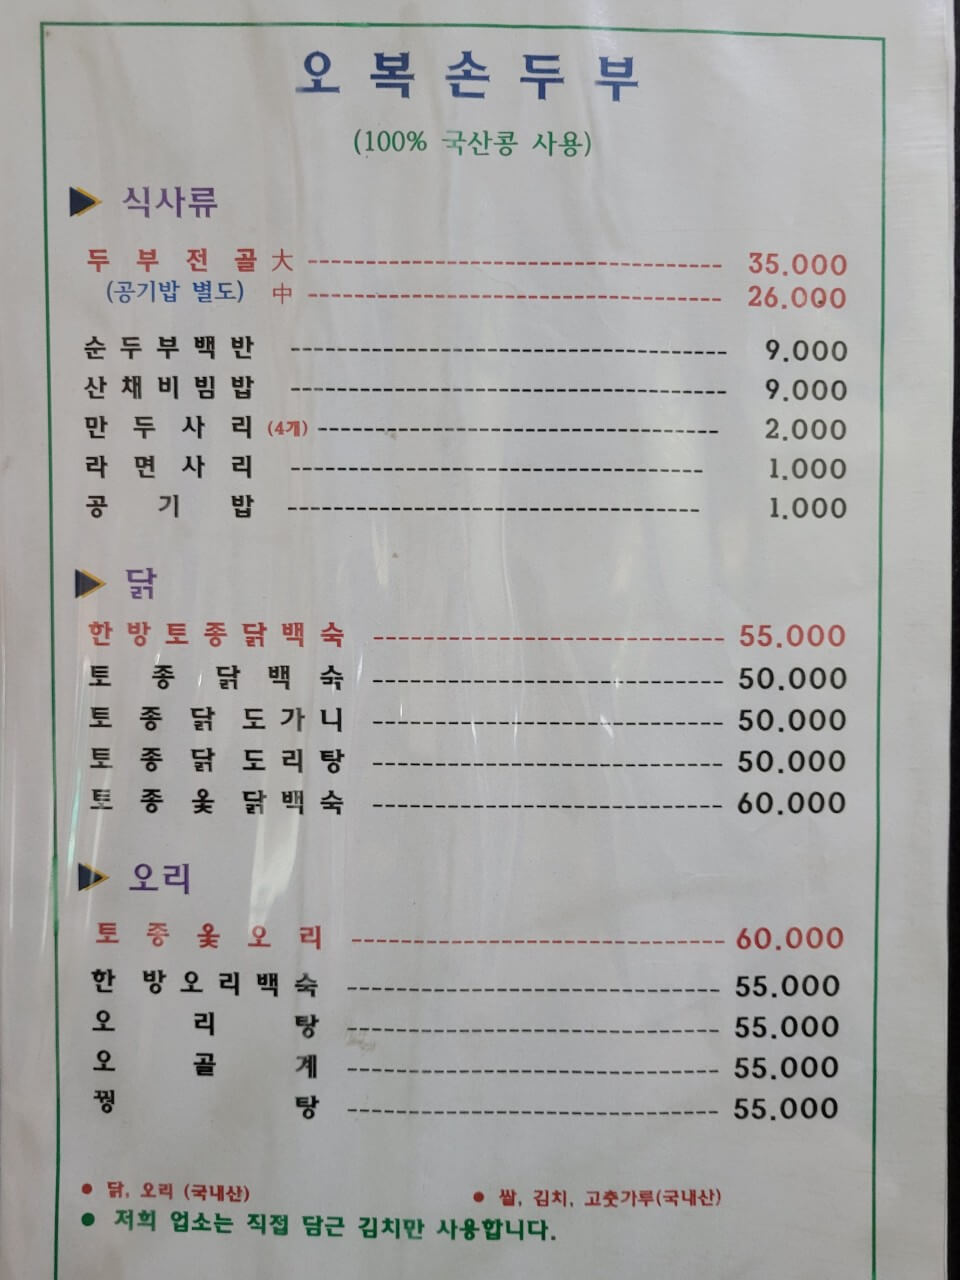 오복손두부
(100% 국산콩 사용)
식사류
두부전골 大 35.000
(공기밥 별도) 中 26.000
순두부백반 9.000
산채비빔밥 9.000
만두사리 (4개) 2.000
라면사리 1.000
공기밥 1.000
닭
한방토종닭백숙 55.000
토종닭백숙 50.000
토종닭도가니 50.000
토종닭도리탕 50.000
토종옻닭백숙 60.000
오리
토종옻오리 60.000
한방오리백숙 55.000
오리탕 55.000
오골계 55.000
꿩탕 55.000
● 닭, 오리 (국내산) ● 쌀, 김치, 고춧가루(국내산)
● 저희 업소는 직접 담근 김치만 사용합니다.